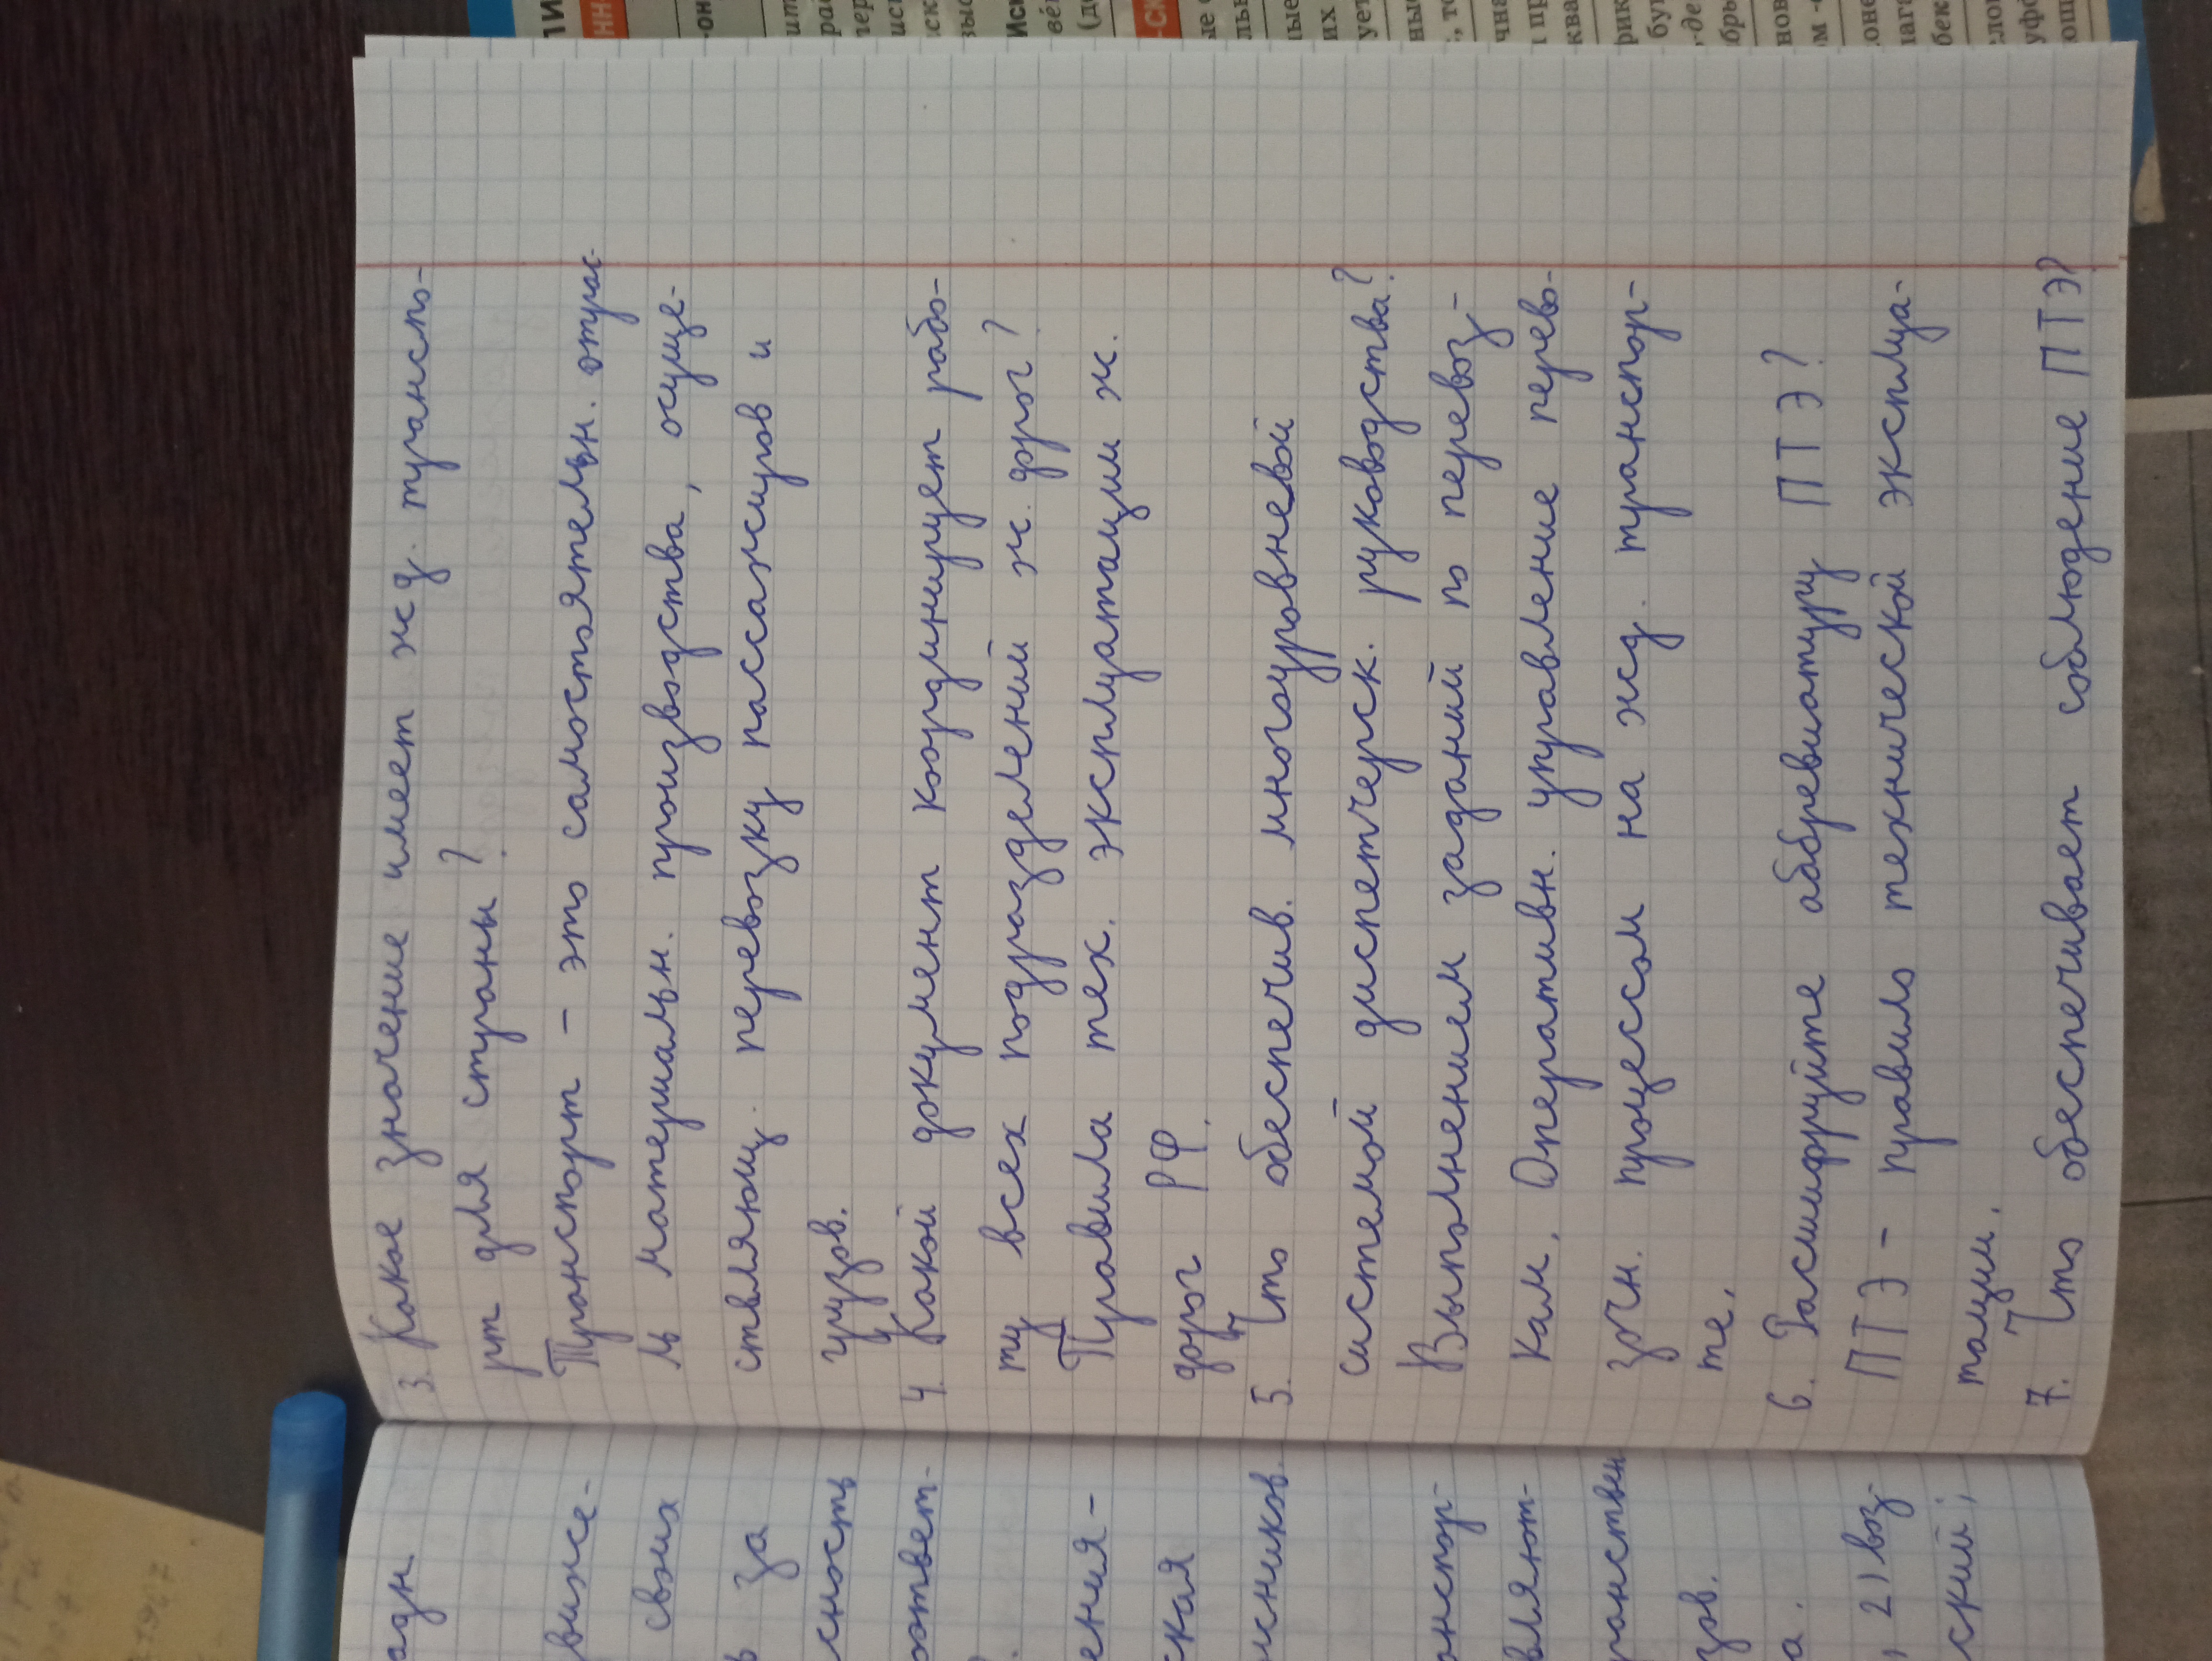 3. Какое значение имеет жд. транспо-
рт для страны?
Транспорт - это самостоятельн. отрас
ль материальн. производства, осуще-
ствляющ. перевозку пассажиров и
грузов.
4. Какой документ координирует рабо-
ту всех подразделений ж. дорог?
Правила тех. эксплуатации ж.
дорог РФ.
5. Что обеспечив. многоуровневой
системой диспетчерск. руководства?
Выполнением заданий по перевоз-
кам. Оперативн. управление перево-
зочн. процессом на жд. транспор-
те.
6. Расшифруйте аббревиатуру ПТЭ?
ПТЭ - правило технической эксплуа-
тации.
7. Что обеспечивает соблюдение ПТЭ?
адн
виже-
своих
в за
сность
ответ-
ения-
ская
жников.
анспор-
вляют-
ранствен
зов.
а.
, 2) воз-
ский;